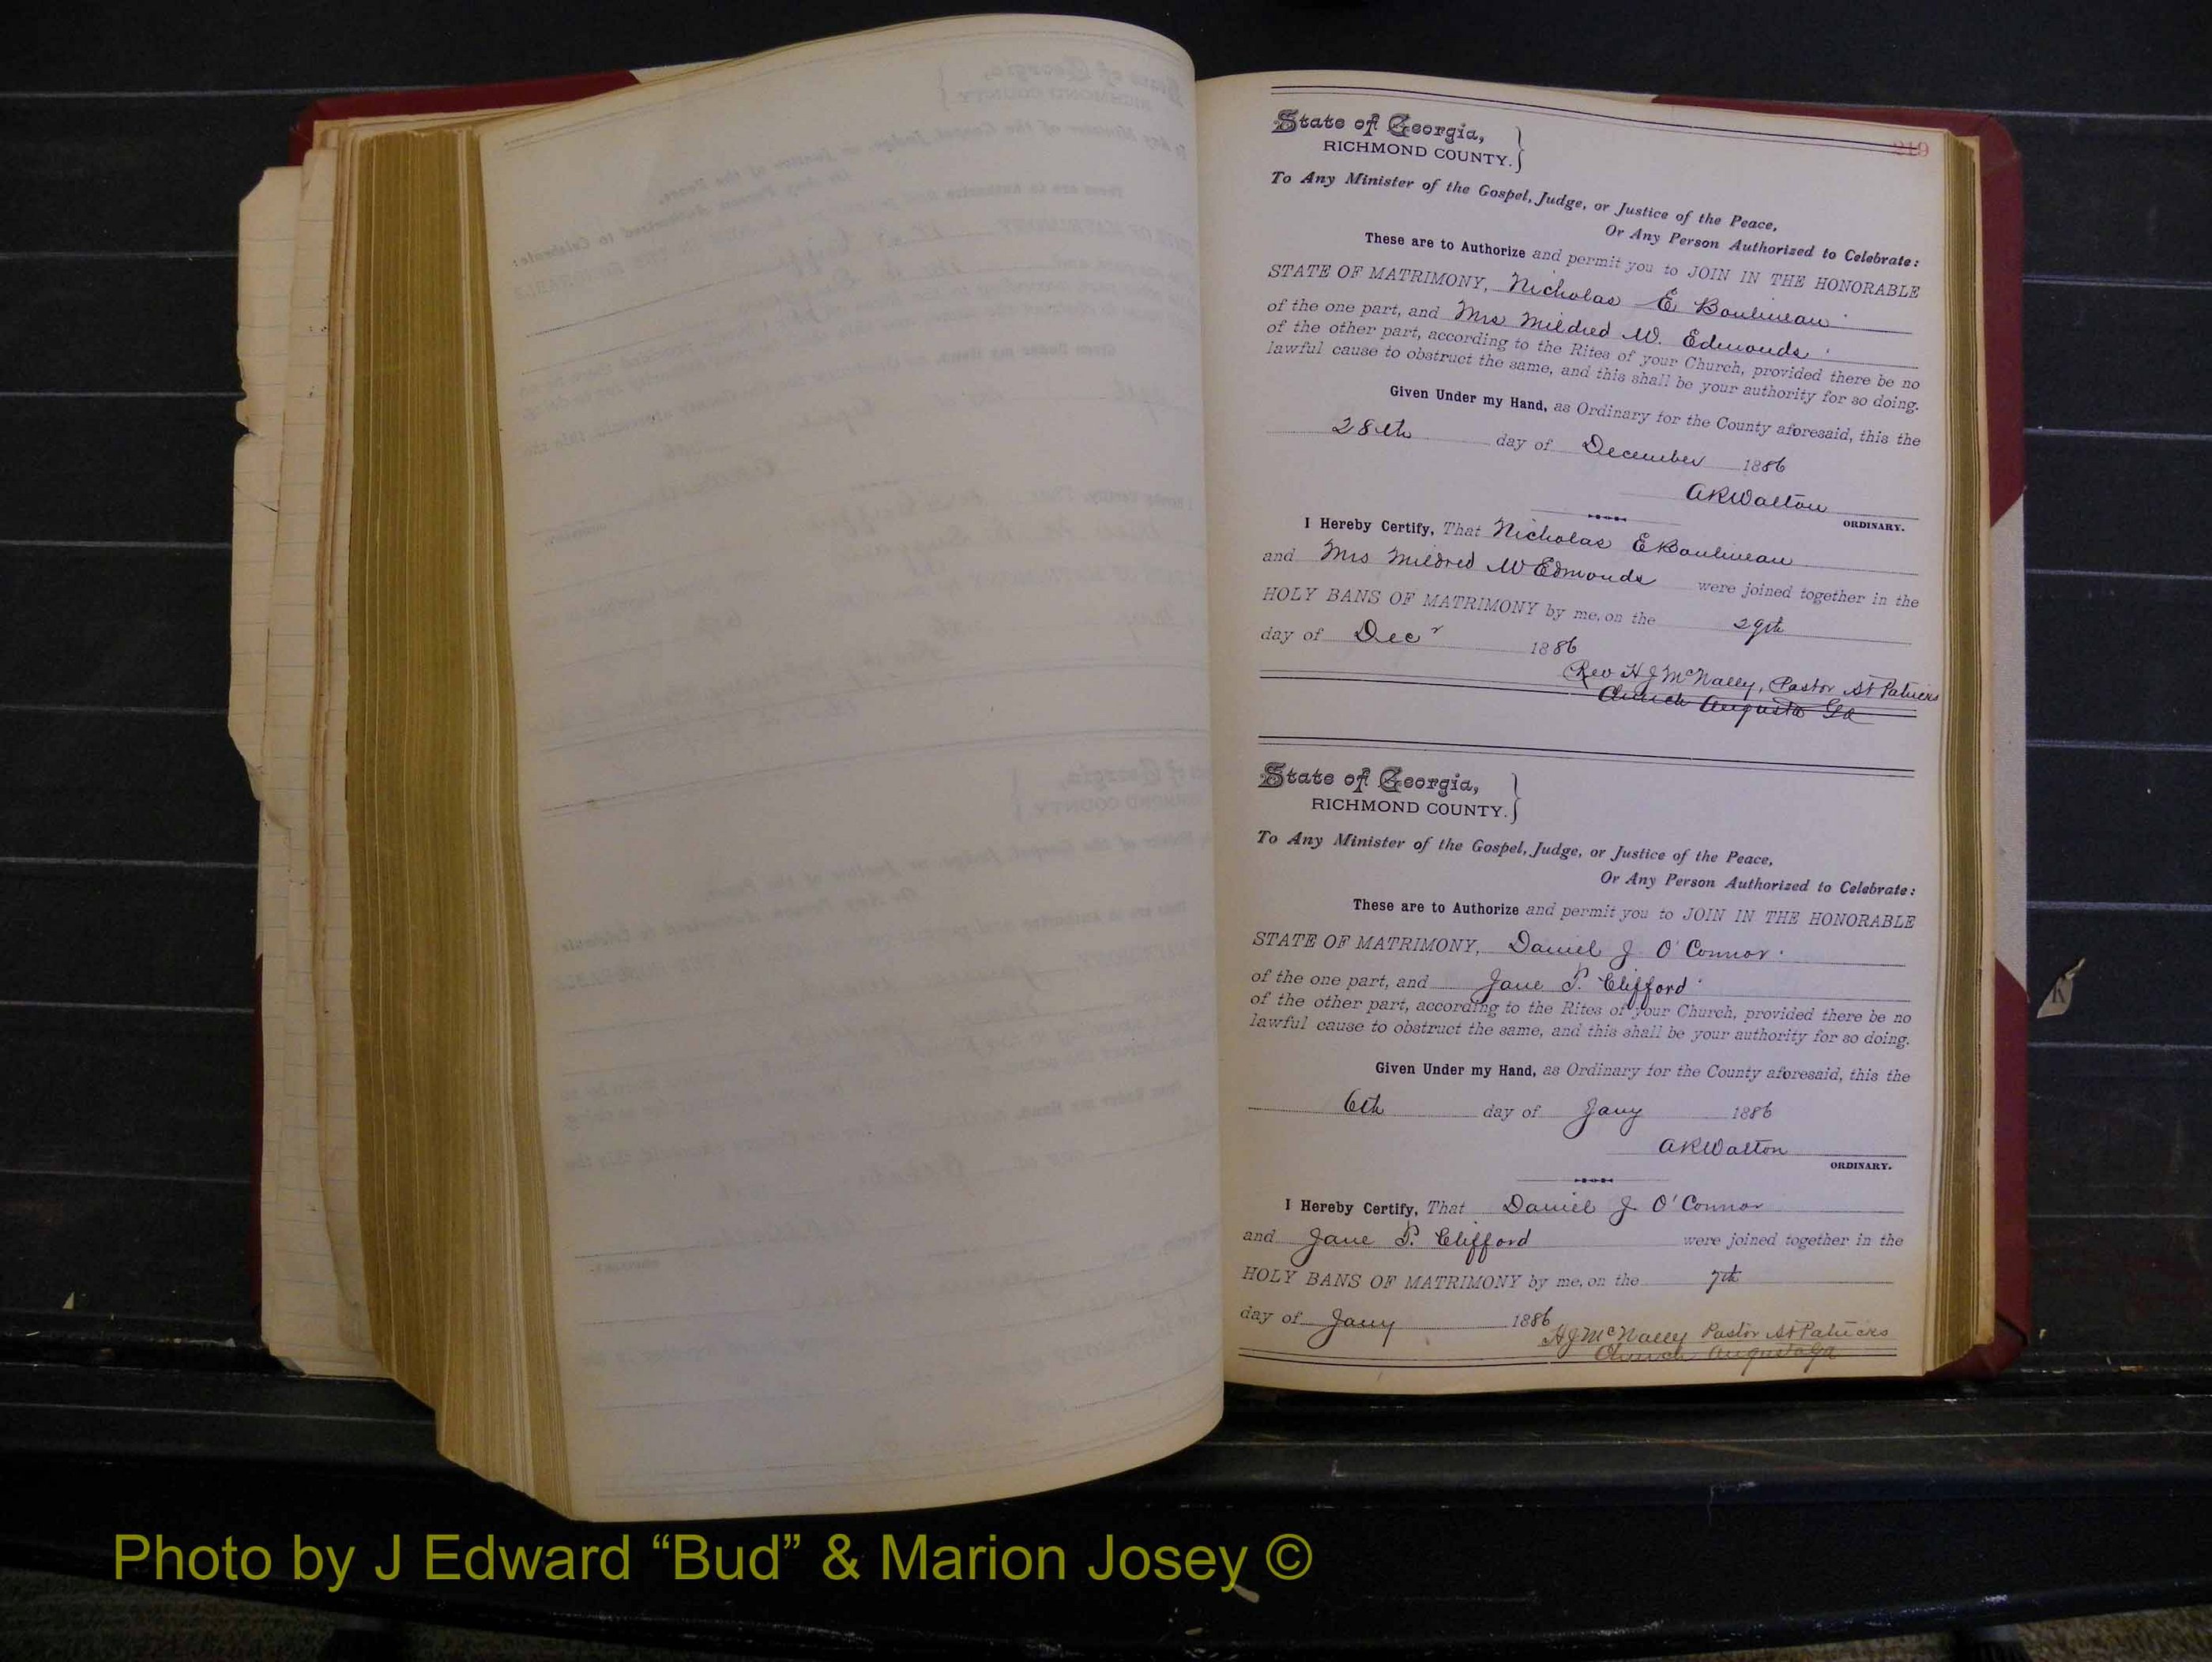 219
State of Georgia,
RICHMOND COUNTY.
To Any Minister of the Gospel, Judge, or Justice of the Peace,
Or Any Person Authorized to Celebrate:
These are to Authorize and permit you to JOIN IN THE HONORABLE
STATE OF MATRIMONY, Nicholas E Boulineau
of the one part, and Mrs Mildred W. Edmonds
of the other part, according to the Rites of your Church, provided there be no
lawful cause to obstruct the same, and this shall be your authority for so doing.
Given Under my Hand, as Ordinary for the County aforesaid, this the
28th day of December 1886
A R Walton
ORDINARY.
I Hereby Certify, That Nicholas E Boulineau
and Mrs Mildred W Edmonds were joined together in the
HOLY BANS OF MATRIMONY by me, on the 29th
day of Decr 1886
Rev H J McNally, Pastor St Patricks
Church Augusta Ga
State of Georgia,
RICHMOND COUNTY.
To Any Minister of the Gospel, Judge, or Justice of the Peace,
Or Any Person Authorized to Celebrate:
These are to Authorize and permit you to JOIN IN THE HONORABLE
STATE OF MATRIMONY, Daniel J O'Connor
of the one part, and Jane P. Clifford
of the other part, according to the Rites of your Church, provided there be no
lawful cause to obstruct the same, and this shall be your authority for so doing.
Given Under my Hand, as Ordinary for the County aforesaid, this the
6th day of Jany 1886
A R Walton
ORDINARY.
I Hereby Certify, That Daniel J O'Connor
and Jane P. Clifford were joined together in the
HOLY BANS OF MATRIMONY by me, on the 7th
day of Jany 1886
H J McNally Pastor St Patricks
Church Augusta Ga
Photo by J Edward “Bud” & Marion Josey ©